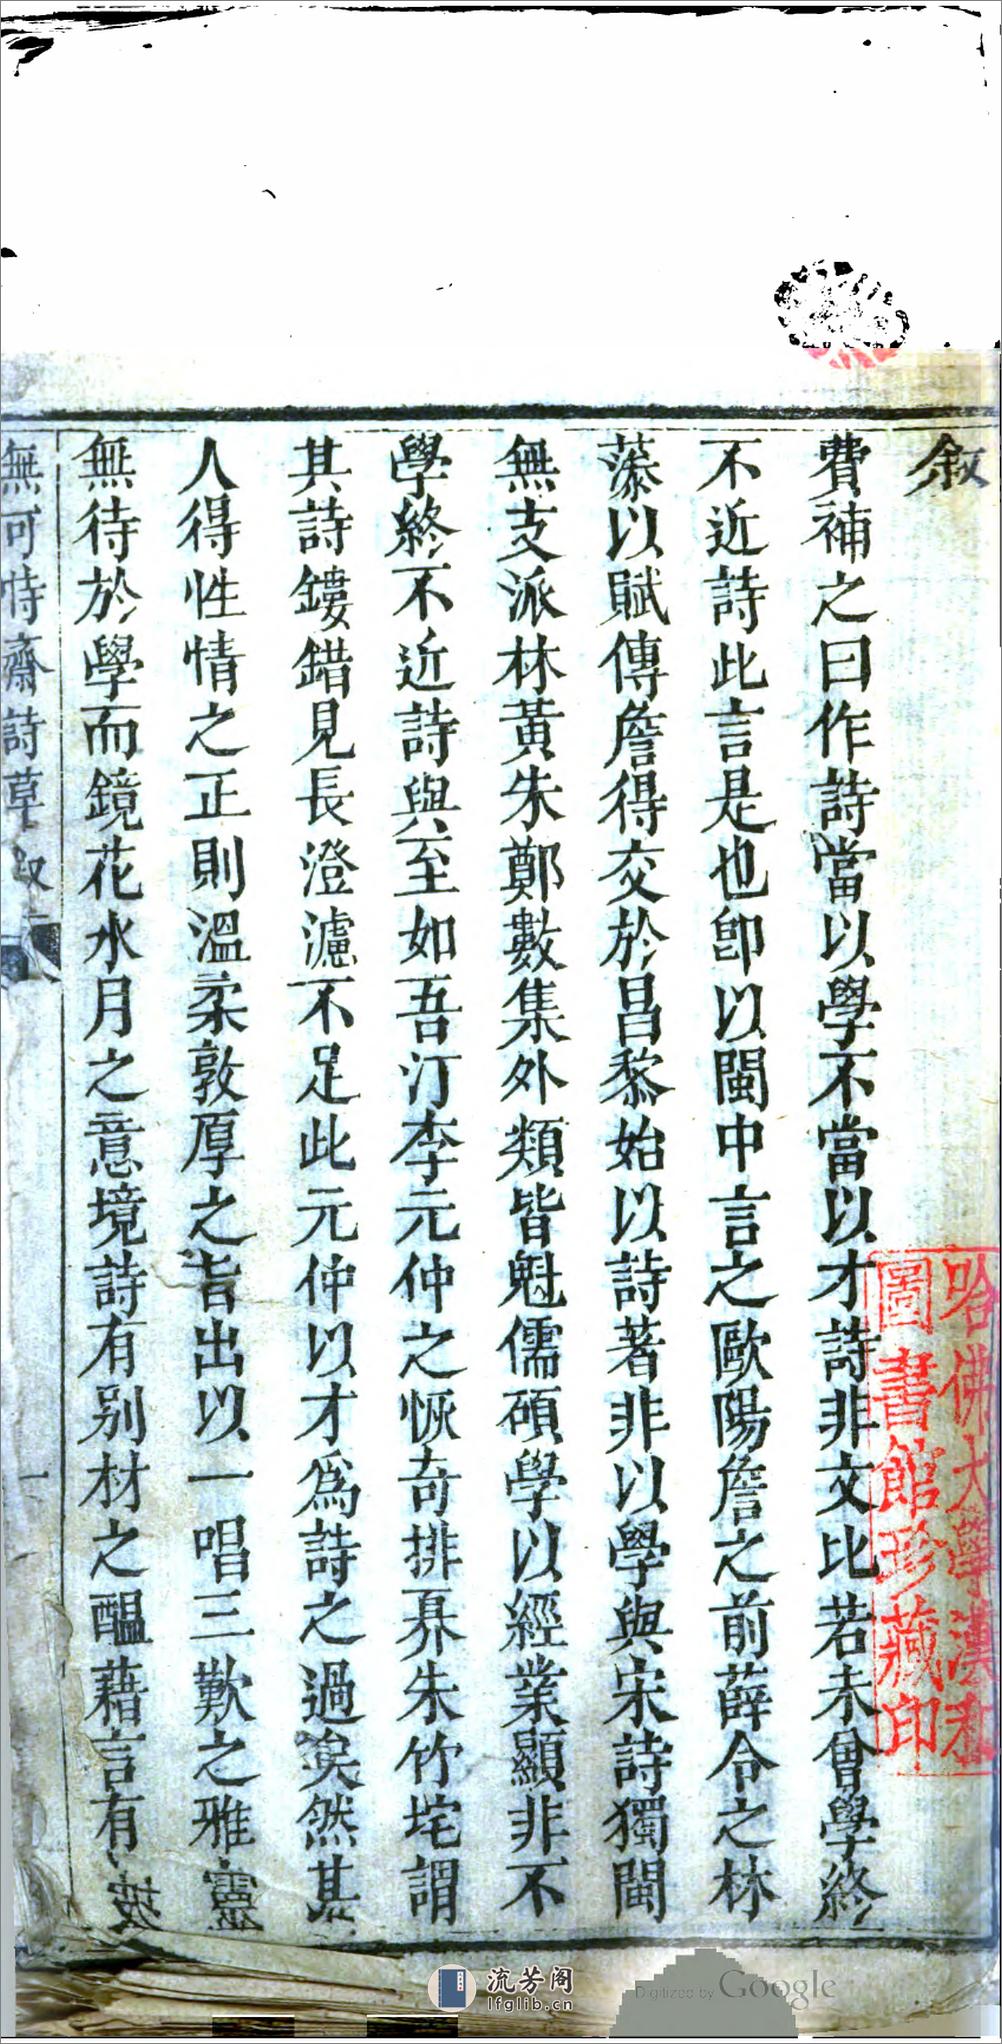 敘
費補之曰作詩當以學不當以才詩非文比若未會學終
不近詩此言是也卽以閩中言之歐陽詹之前薛令之林
藻以賦傳詹得交於昌黎始以詩著非以學與宋詩獨閩
無支派林黃朱鄭數集外類皆魁儒碩學以經業顯非不
學終不近詩與至如吾汀李元仲之恢奇排奡朱竹垞謂
其詩鏤錯見長澄濾不足此元仲以才為詩之過矣然其
人得性情之正則溫柔敦厚之旨出以一唱三歎之雅靈
無待於學而鏡花水月之意境詩有別材之醞藉言有
無可恃齋詩草
敘
一
哈佛大學漢和
圖書館珍藏印
流芳阁
lfglib.cn
Digitized by Google